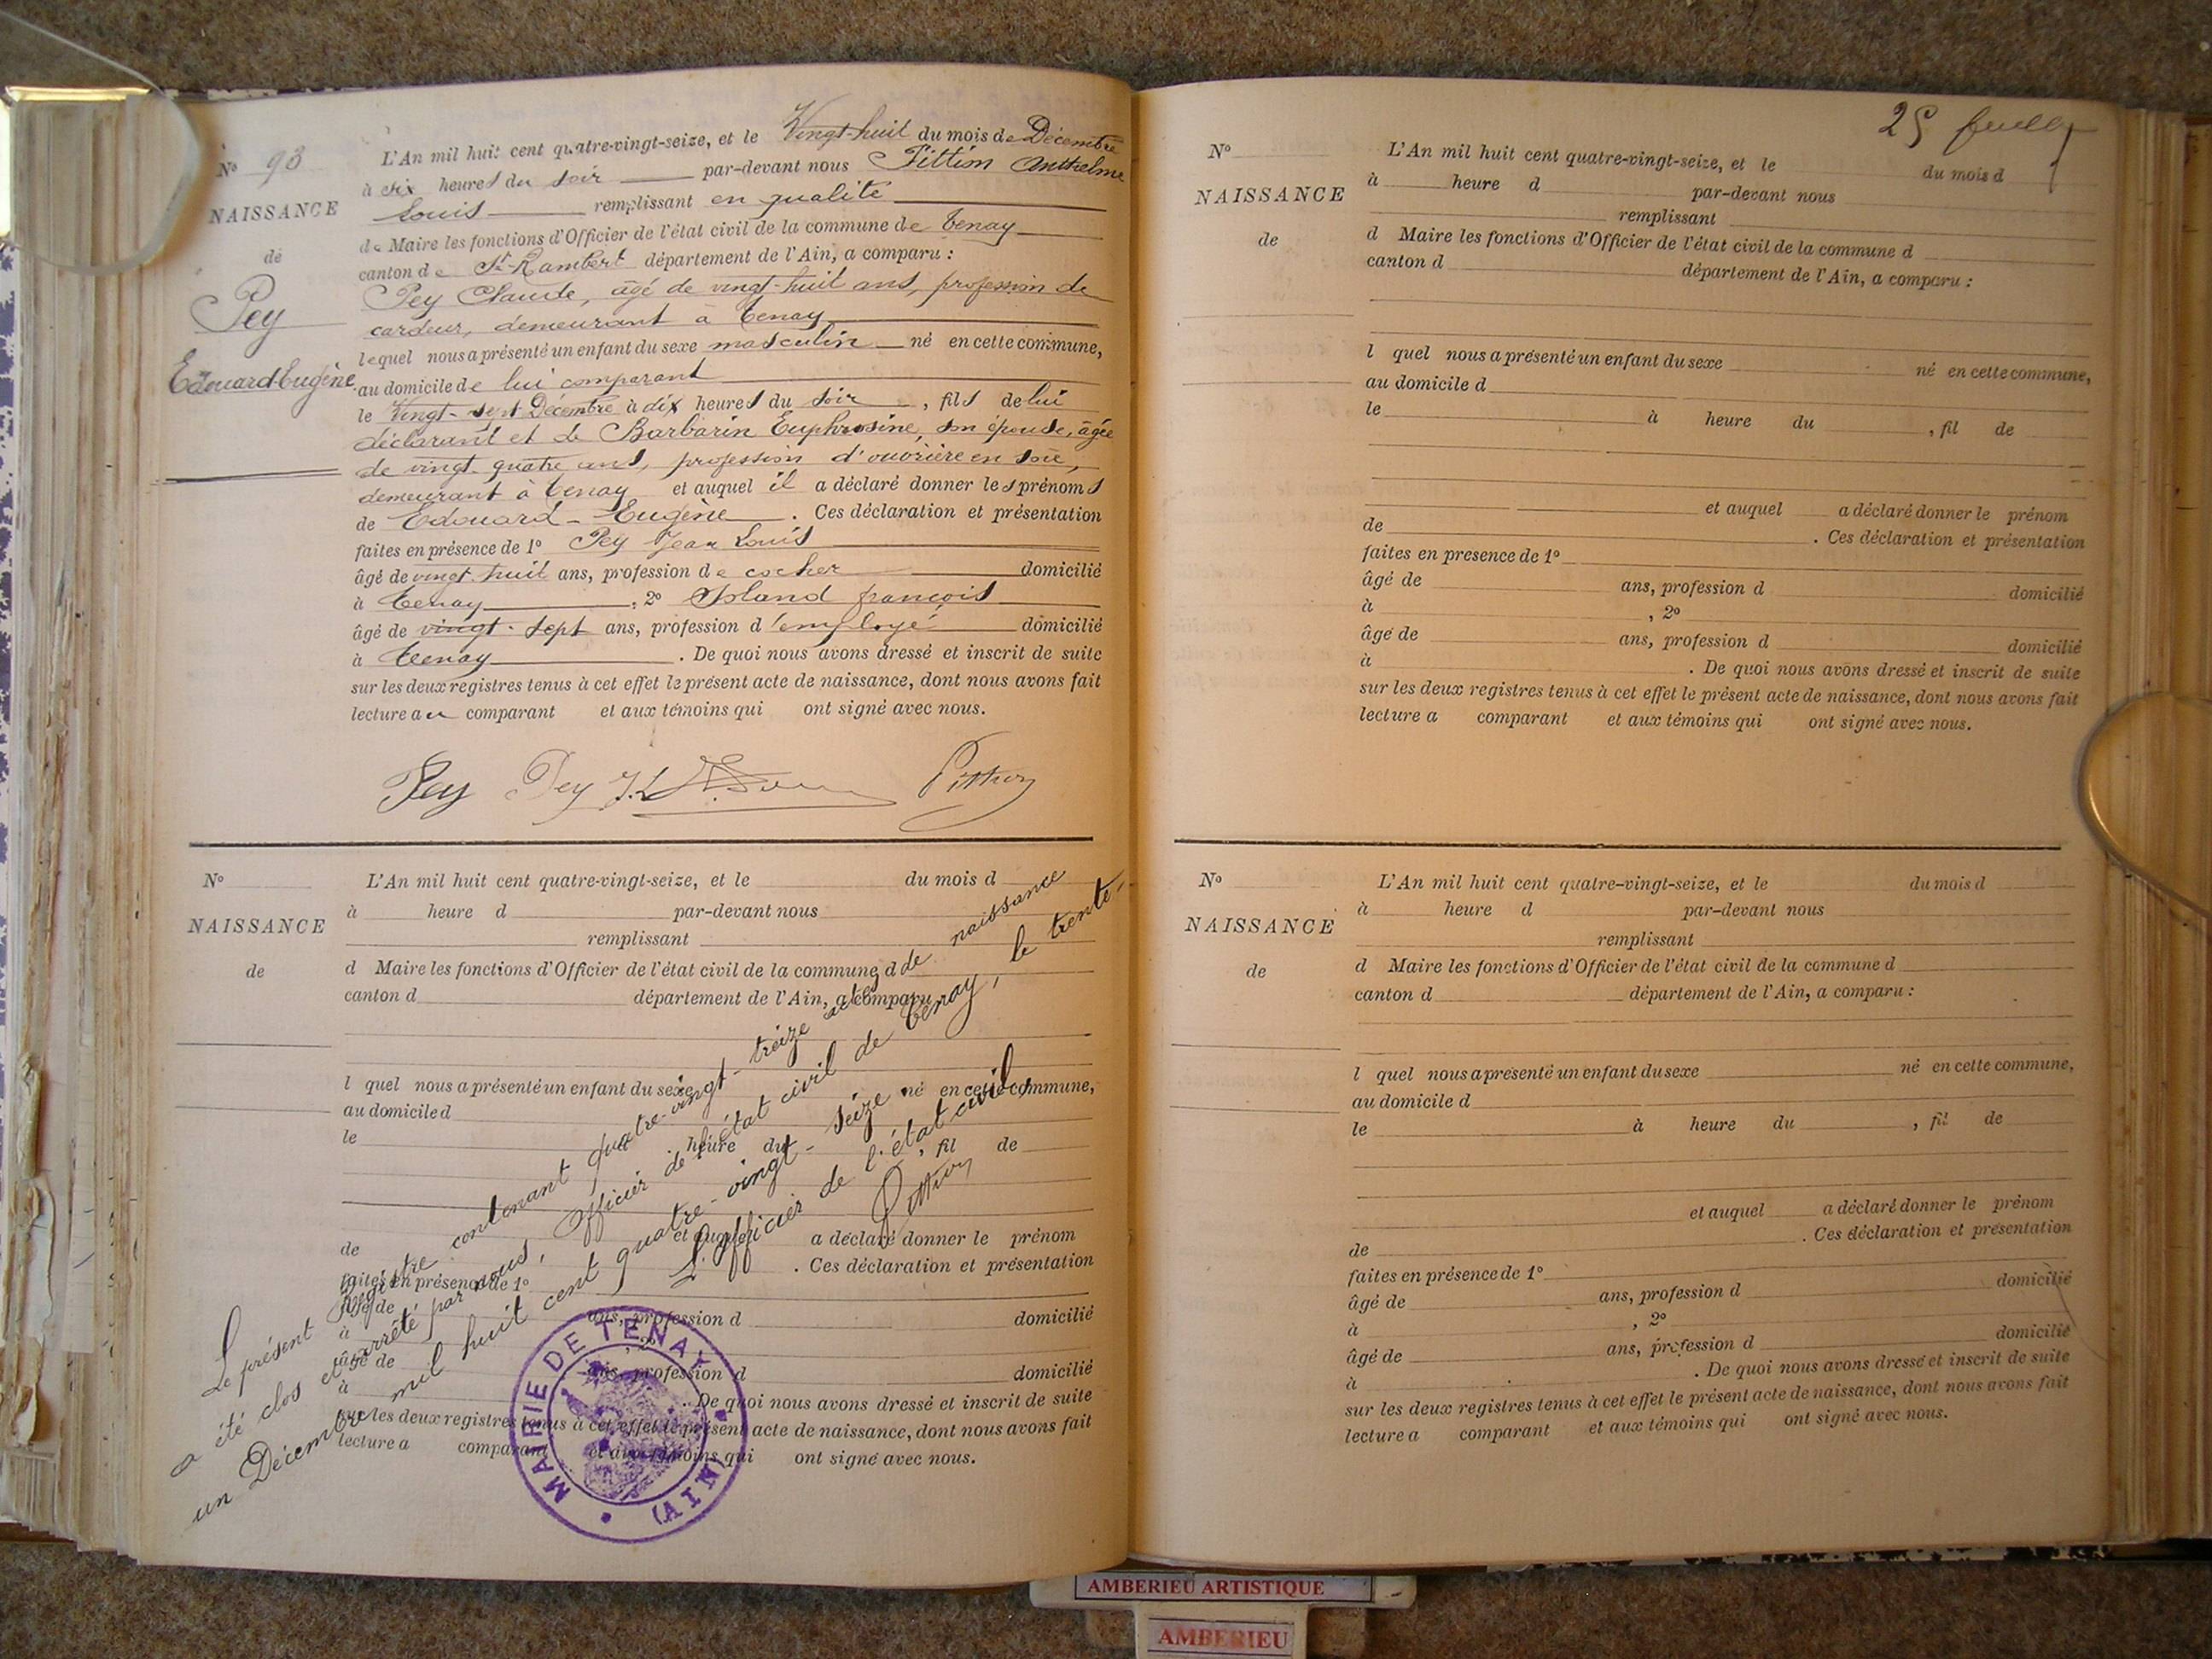 N° 93
NAISSANCE
de
Pey
Edouard-Eugène
L'An mil huit cent quatre-vingt-seize, et le Vingt-huit du mois de Décembre
à six heures du soir par-devant nous Pittion Anthelme
Louis remplissant en qualité
de Maire les fonctions d'Officier de l'état civil de la commune de Tenay
canton de St-Rambert département de l'Ain, a comparu :
Pey Claude, âgé de vingt-huit ans, profession de
cardeur, demeurant à Tenay
lequel nous a présenté un enfant du sexe masculin né en cette commune,
au domicile de lui comparant
le Vingt-sept Décembre à dix heures du soir, fils de lui
déclarant et de Barbarin Euphrosine, son épouse, âgée
de vingt-quatre ans, profession d'ouvrière en soie,
demeurant à Tenay et auquel il a déclaré donner les prénoms
de Edouard-Eugène. Ces déclaration et présentation
faites en présence de 1° Pey Jean Louis
âgé de vingt-huit ans, profession de cocher domicilié
à Tenay, 2° françois
âgé de vingt-sept ans, profession d'employé domicilié
à Tenay. De quoi nous avons dressé et inscrit de suite
sur les deux registres tenus à cet effet le présent acte de naissance, dont nous avons fait
lecture au comparant et aux témoins qui ont signé avec nous.
Pey Pey J.L Pittion
N°
NAISSANCE
de
L'An mil huit cent quatre-vingt-seize, et le du mois d
à heure d par-devant nous
remplissant
d Maire les fonctions d'Officier de l'état civil de la commune d
canton d département de l'Ain, a comparu :
l quel nous a présenté un enfant du sexe né en cette commune,
au domicile d
le à heure du , fil de
et auquel a déclaré donner le prénom
de . Ces déclaration et présentation
faites en présence de 1°
âgé de ans, profession d domicilié
à , 2°
âgé de ans, profession d domicilié
à . De quoi nous avons dressé et inscrit de suite
sur les deux registres tenus à cet effet le présent acte de naissance, dont nous avons fait
lecture a comparant et aux témoins qui ont signé avec nous.
Le présent Registre contenant quatre-vingt-treize actes de naissance
a été clos et arrêté par nous, Officier de l'état civil de Tenay, le trente-
un Décembre mil huit cent quatre-vingt-seize.
L'Officier de l'état-civil,
Pittion
MAIRIE DE TENAY
(AIN)
25
N°
NAISSANCE
de
L'An mil huit cent quatre-vingt-seize, et le du mois d
à heure d par-devant nous
remplissant
d Maire les fonctions d'Officier de l'état civil de la commune d
canton d département de l'Ain, a comparu :
l quel nous a présenté un enfant du sexe né en cette commune,
au domicile d
le à heure du , fil de
et auquel a déclaré donner le prénom
de . Ces déclaration et présentation
faites en presence de 1°
âgé de ans, profession d domicilié
à , 2°
âgé de ans, profession d domicilié
à . De quoi nous avons dressé et inscrit de suite
sur les deux registres tenus à cet effet le présent acte de naissance, dont nous avons fait
lecture a comparant et aux témoins qui ont signé avec nous.
N°
NAISSANCE
de
L'An mil huit cent quatre-vingt-seize, et le du mois d
à heure d par-devant nous
remplissant
d Maire les fonctions d'Officier de l'état civil de la commune d
canton d département de l'Ain, a comparu :
l quel nous a présenté un enfant du sexe né en cette commune,
au domicile d
le à heure du , fil de
et auquel a déclaré donner le prénom
de . Ces déclaration et présentation
faites en présence de 1°
âgé de ans, profession d domicilié
à , 2°
âgé de ans, profession d domicilié
à . De quoi nous avons dressé et inscrit de suite
sur les deux registres tenus à cet effet le présent acte de naissance, dont nous avons fait
lecture a comparant et aux témoins qui ont signé avec nous.
AMBERIEU ARTISTIQUE
AMBERIEU